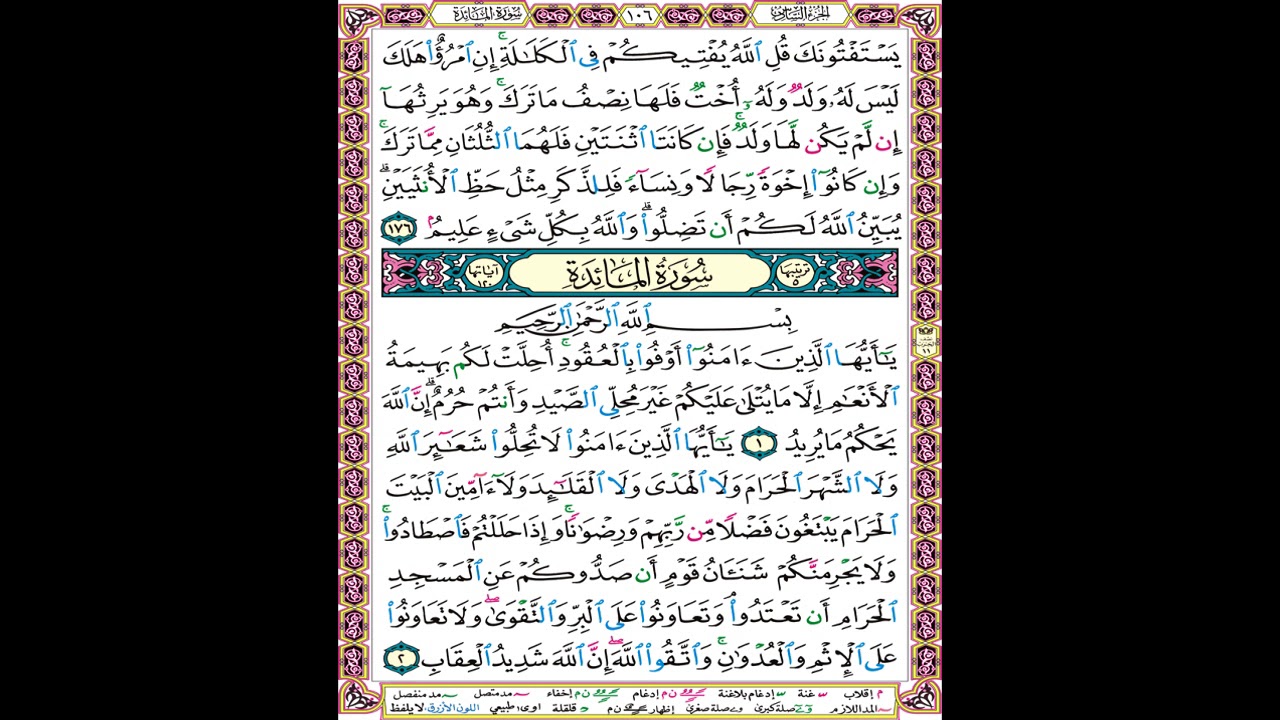 سُورَةُ المَائِدَة ١٠٦ الجُزءُ السَّادِسُ
يَسۡتَفۡتُونَكَ قُلِ ٱللَّهُ يُفۡتِيكُمۡ فِي ٱلۡكَلَٰلَةِۚ إِنِ ٱمۡرُؤٌاْ هَلَكَ
لَيۡسَ لَهُۥ وَلَدٞ وَلَهُۥٓ أُخۡتٞ فَلَهَا نِصۡفُ مَا تَرَكَۚ وَهُوَ يَرِثُهَآ
إِن لَّمۡ يَكُن لَّهَا وَلَدٞۚ فَإِن كَانَتَا ٱثۡنَتَيۡنِ فَلَهُمَا ٱلثُّلُثَانِ مِمَّا تَرَكَۚ
وَإِن كَانُوٓاْ إِخۡوَةٗ رِّجَالٗا وَنِسَآءٗ فَلِلذَّكَرِ مِثۡلُ حَظِّ ٱلۡأُنثَيَيۡنِۗ
يُبَيِّنُ ٱللَّهُ لَكُمۡ أَن تَضِلُّواْۗ وَٱللَّهُ بِكُلِّ شَيۡءٍ عَلِيمُۢ ١٧٦
ترتيبها ٥ سُورَةُ المَائِدَة آياتها ١٢٠
بِسۡمِ ٱللَّهِ ٱلرَّحۡمَٰنِ ٱلرَّحِيمِ
يَٰٓأَيُّهَا ٱلَّذِينَ ءَامَنُوٓاْ أَوۡفُواْ بِٱلۡعُقُودِۚ أُحِلَّتۡ لَكُم بَهِيمَةُ
ٱلۡأَنۡعَٰمِ إِلَّا مَا يُتۡلَىٰ عَلَيۡكُمۡ غَيۡرَ مُحِلِّي ٱلصَّيۡدِ وَأَنتُمۡ حُرُمٌۗ إِنَّ ٱللَّهَ
يَحۡكُمُ مَا يُرِيدُ ١ يَٰٓأَيُّهَا ٱلَّذِينَ ءَامَنُواْ لَا تُحِلُّواْ شَعَٰٓئِرَ ٱللَّهِ
وَلَا ٱلشَّهۡرَ ٱلۡحَرَامَ وَلَا ٱلۡهَدۡيَ وَلَا ٱلۡقَلَٰٓئِدَ وَلَآ ءَآمِّينَ ٱلۡبَيۡتَ
ٱلۡحَرَامَ يَبۡتَغُونَ فَضۡلٗا مِّن رَّبِّهِمۡ وَرِضۡوَٰنٗاۚ وَإِذَا حَلَلۡتُمۡ فَٱصۡطَادُواْۚ
وَلَا يَجۡرِمَنَّكُمۡ شَنَـَٔانُ قَوۡمٍ أَن صَدُّوكُمۡ عَنِ ٱلۡمَسۡجِدِ
ٱلۡحَرَامِ أَن تَعۡتَدُواْۘ وَتَعَاوَنُواْ عَلَى ٱلۡبِرِّ وَٱلتَّقۡوَىٰۖ وَلَا تَعَاوَنُواْ
عَلَى ٱلۡإِثۡمِ وَٱلۡعُدۡوَٰنِۚ وَٱتَّقُواْ ٱللَّهَۖ إِنَّ ٱللَّهَ شَدِيدُ ٱلۡعِقَابِ ٢
م إقلاب غنة إدغام بلاغنة ن م إدغام ن م إخفاء مد متصل مد منفصل
المد اللازم صلة كبرى صلة صغرى إظهار ن م قلقلة اوى ا طبيعي اللون الأزرق لا يلفظ